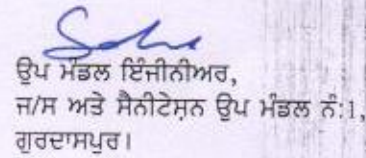 ਉਪ ਮੰਡਲ ਇੰਜੀਨੀਅਰ,
ਜ/ਸ ਅਤੇ ਸੈਨੀਟੇਸ਼ਨ ਉਪ ਮੰਡਲ ਨੰ:1,
ਗੁਰਦਾਸਪੁਰ।